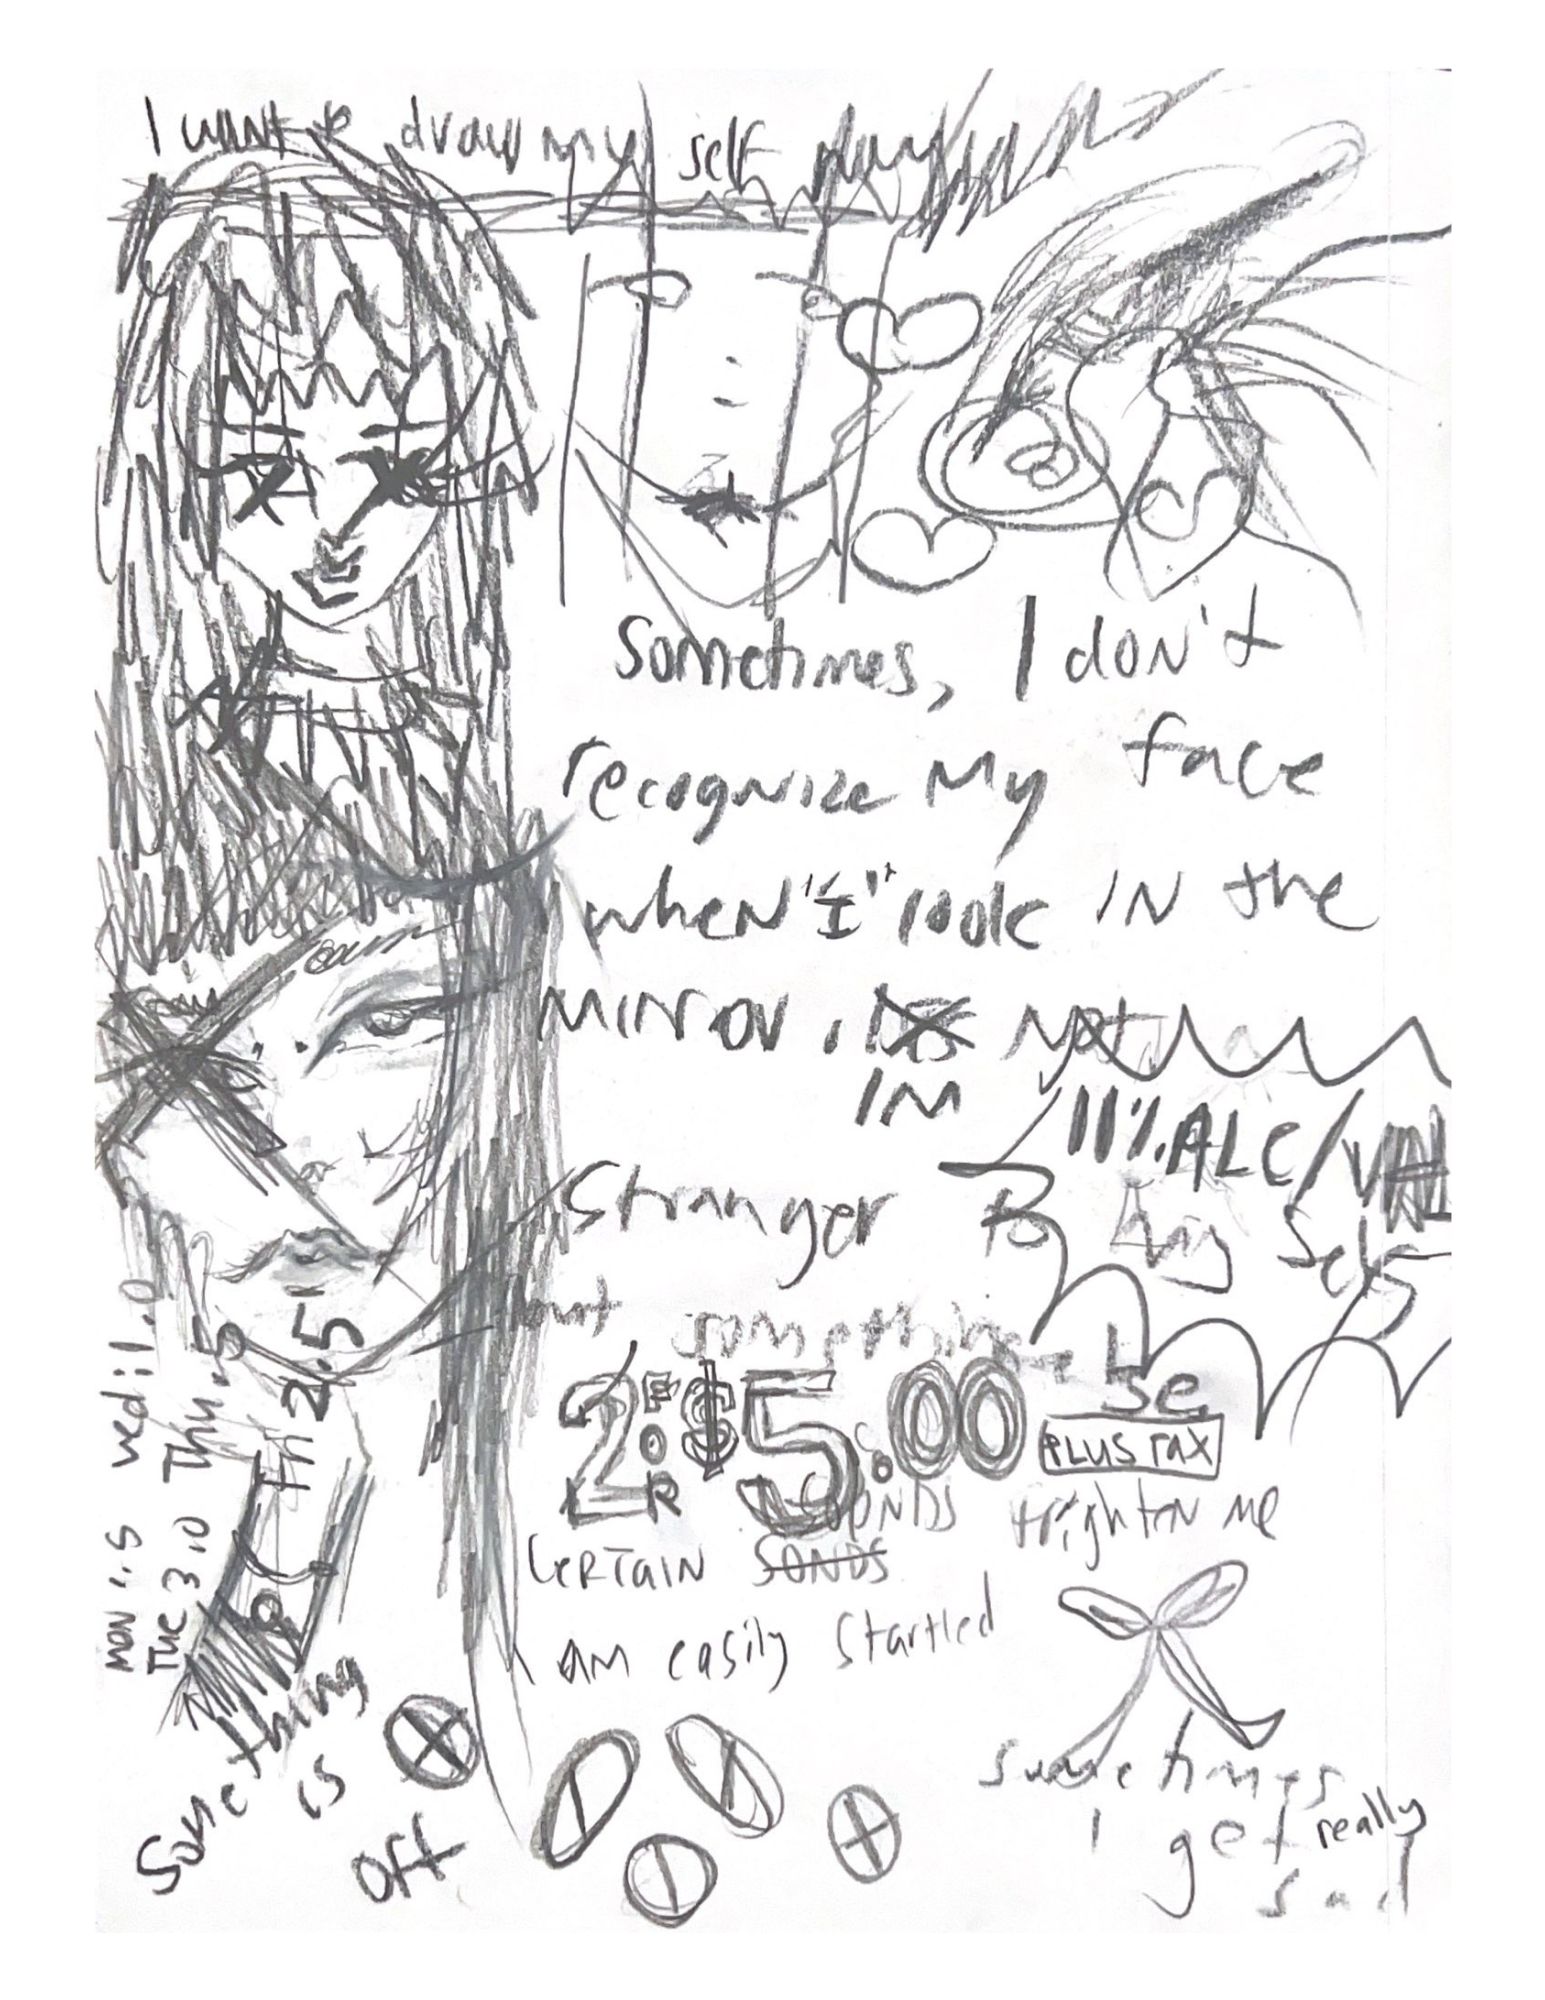 I want to draw my self
Sometimes, I don't
recognize my face
when "I" look in the
mirror, not
IM
11% ALC/VOL
Stranger to my self
but something
2 FOR $5.00 se
PLUS TAX
SOUNDS frighten me
CERTAIN SONDS
I AM easily startled
MON 1.5 wed 1.0
Tue 3.0 Thu .5
Fri 2.5
Something
is
off
sometimes
I get really
sad